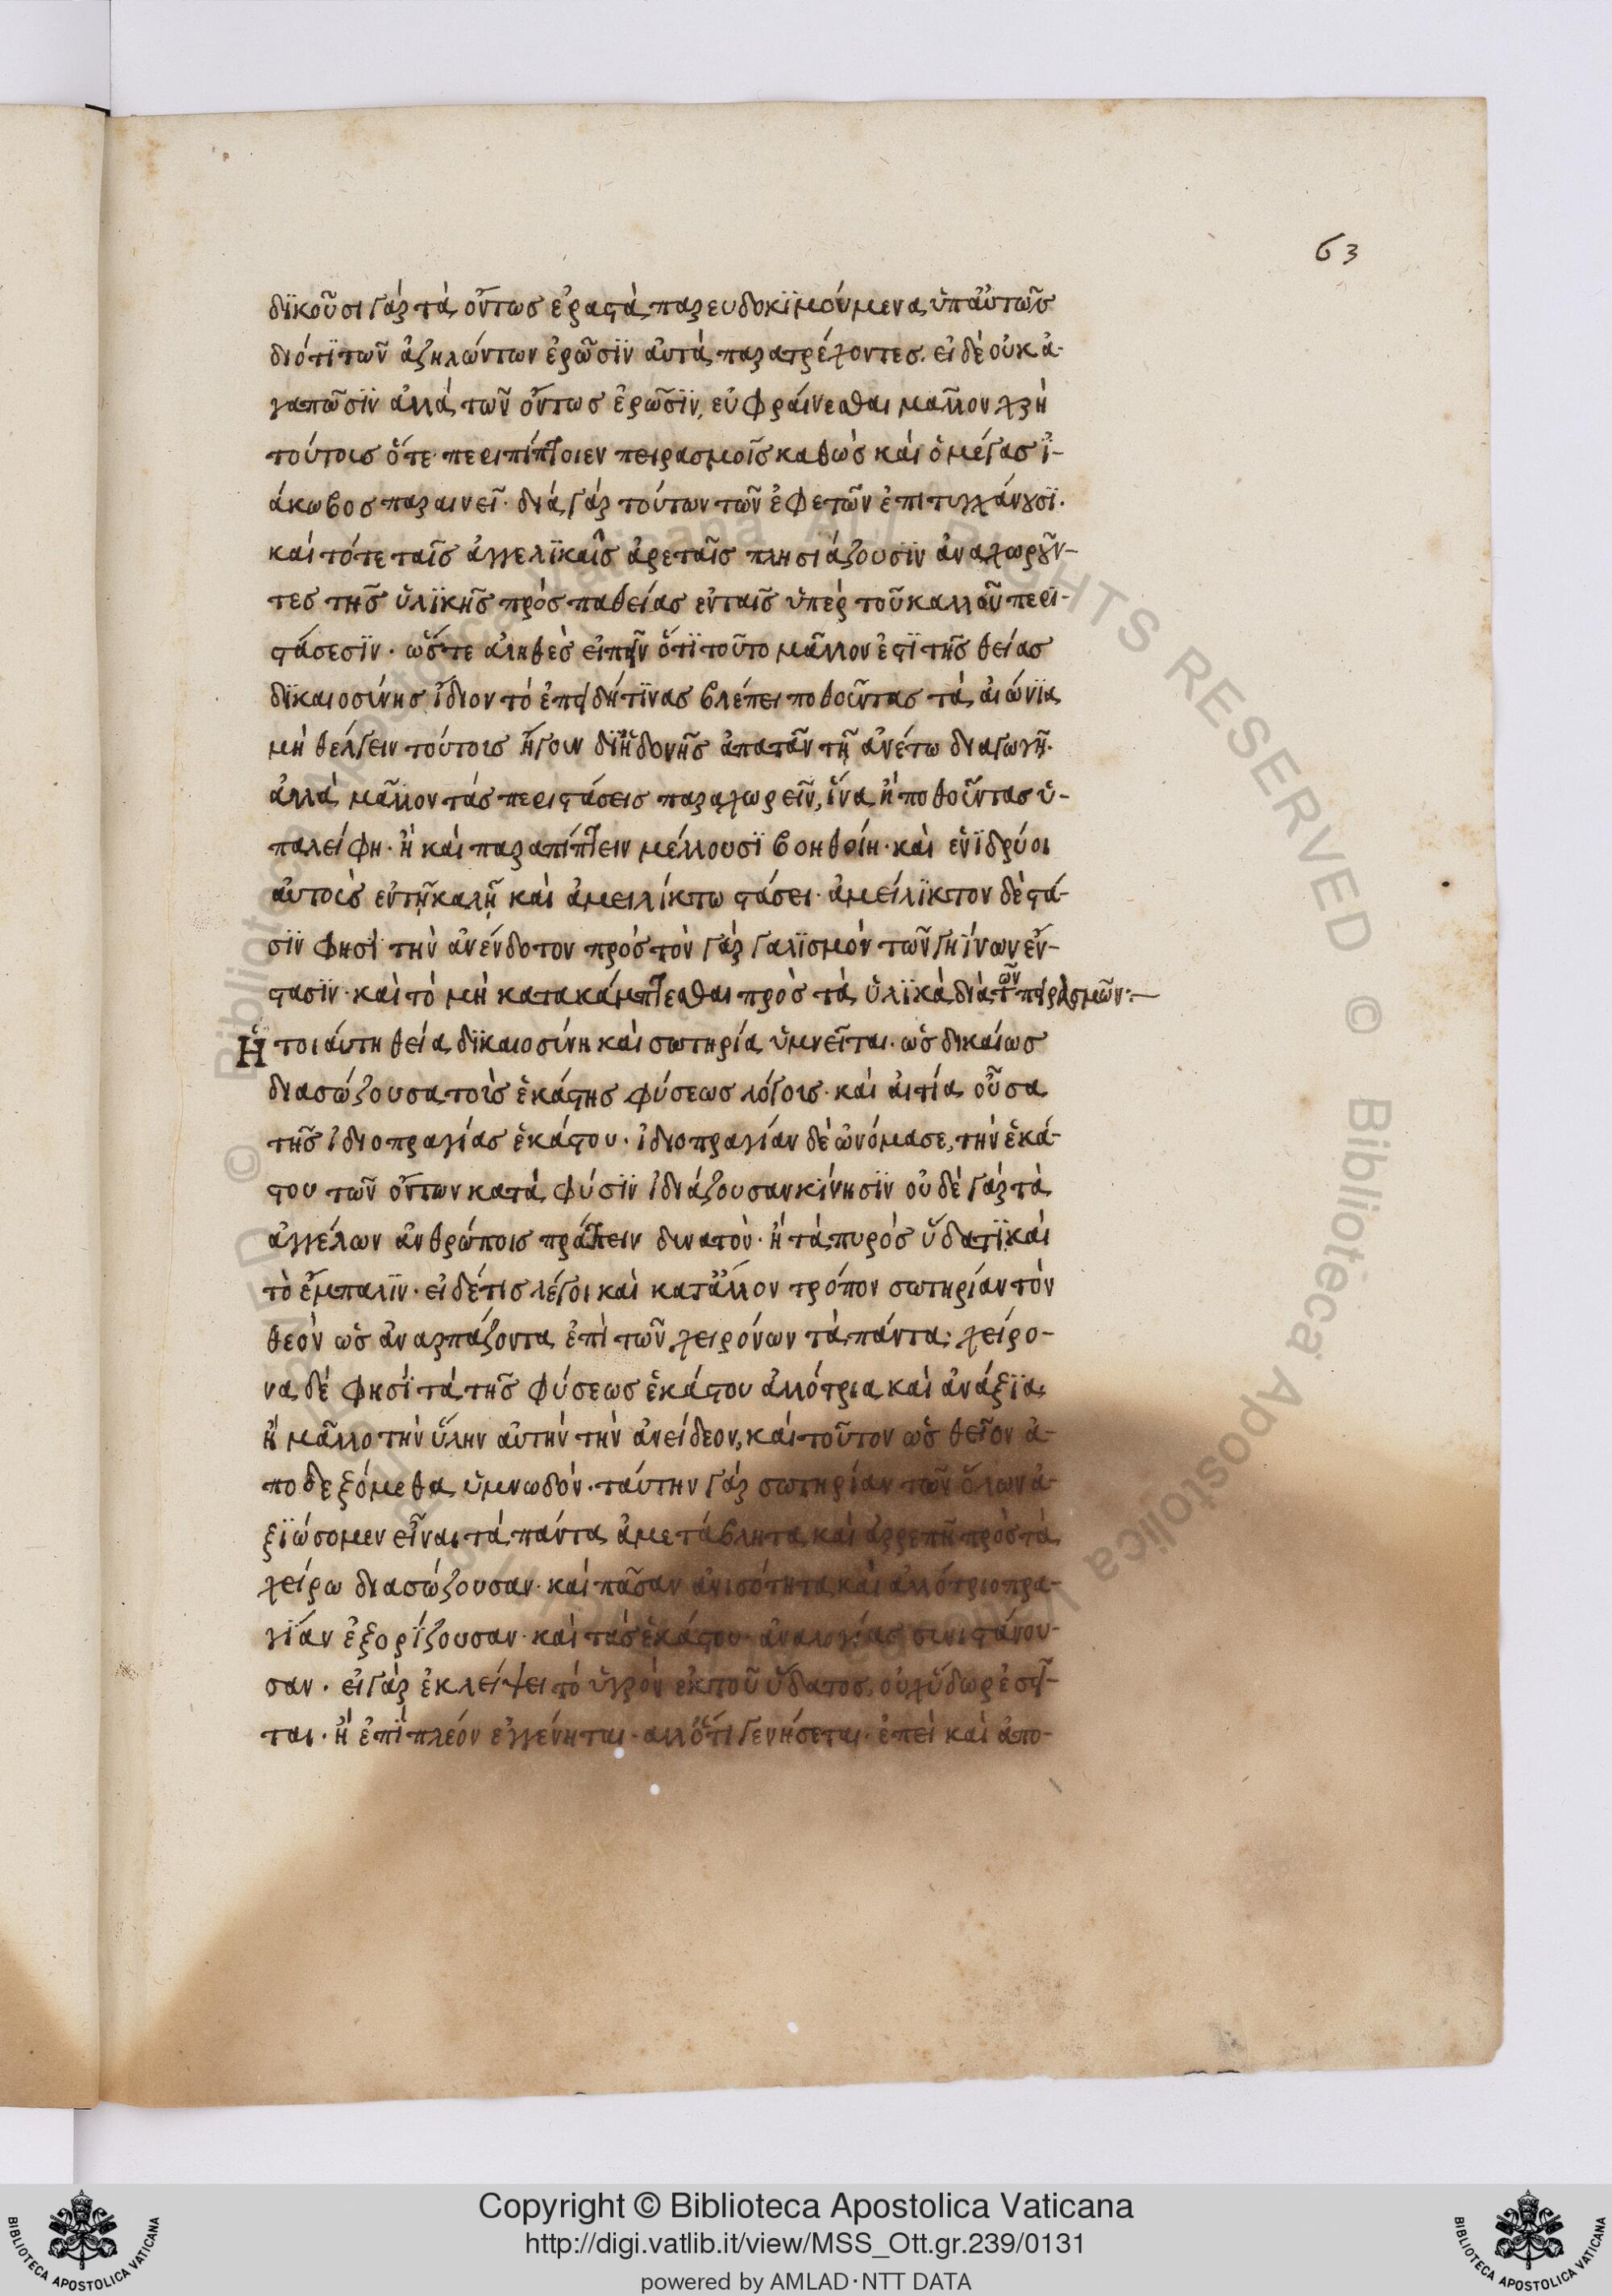 63
δϊκοῦσι γὰρ τὰ ὄντως ἐραστὰ παρευδοκϊμούμενα ὑπ αὐτῶν
διότϊ τῶν ἀζηλώντων ἐρῶσϊν αὐτὰ παρατρέχοντες. εἰ δὲ οὐκ ἀ-
γαπῶσϊν ἀλλὰ τῶν ὄντως ἐρῶσϊν, εὐφραίνεσθαι μᾶλλον χρὴ
τούτοις ὅτε περιπίπτοιεν πειρασμοῖς καθὼς καὶ ὁ μέγας ϊ-
άκωβος παραινεῖ· διὰ γὰρ τούτων τῶν ἐφετῶν ἐπιτυγχάνουσϊ.
καὶ τότε ταῖς ἀγγελϊκαῖς ἀρεταῖς πλησιάζουσϊν ἀναχωροῦν-
τες τῆς ὑλϊκῆς προσπαθείας ἐν ταῖς ὑπὲρ τοῦ καλλοῦ περι-
στάσεσϊν· ὥστε ἀληθὲς εἰπεῖν ὅτϊ τοῦτο μᾶλλον ἐστϊ τῆς θείας
δϊκαιοσύνης ἴδιον τὸ ἐπειδή τϊνας βλέπει ποθοῦντας τὰ αἰώνϊα
μὴ θέλγειν τούτοις ἤγουν δϊ ἡδονῆς ἀπατᾶν τῇ ἀνέτω διαγωγῇ.
ἀλλὰ μᾶλλον τὰς περιστάσεις παραχωρεῖν, ἵνα ἢ ποθοῦντας ὑ-
παλείφη· ἢ καὶ παραπίπτειν μέλλουσϊ βοηθοίη· καὶ ἐνϊδρύοι
αὐτοὺς ἐν τῇ καλῇ καὶ ἀμειλίκτω στάσει· ἀμείλϊκτον δὲ στά-
σϊν φησὶ τὴν ἀνένδοτον πρὸς τὸν γαργαλϊσμὸν τῶν γηΐνων ἔν-
στασϊν· καὶ τὸ μὴ κατακάμπτεσθαι πρὸς τὰ ὑλϊκὰ διὰ τῶν πειρασμῶν:—
Ἡ τοιαύτη θεία δϊκαιοσύνη καὶ σωτηρία ὑμνεῖται. ὡς δικαίως
διασώζουσα τοὺς ἑκάστης φύσεως λόγους· καὶ αἰτία οὖσα
τῆς ἰδιοπραγίας ἑκάστου· ἰδιοπραγίαν δὲ ὠνόμασε, τὴν ἑκά-
στου τῶν ὄντων κατὰ φύσϊν ἰδιάζουσαν κίνησϊν οὐδὲ γὰρ τὰ
ἀγγέλων ἀνθρώποις πράττειν δυνατὸν· ἢ τὰ πυρὸς ὕδατϊ καὶ
τὸ ἔμπαλϊν· εἰ δέ τις λέγοι καὶ κατ ἄλλον τρόπον σωτηρίαν τὸν
θεὸν ὡς ἀναρπάζοντα ἐπὶ τῶν χειρόνων τὰ πάντα· χείρο-
να δὲ φησϊ τὰ τῆς φύσεως ἑκάστου ἀλλότρια καὶ ἀνάξϊα
ἢ μᾶλλο τὴν ὕλην αὐτὴν τὴν ἀνείδεον, καὶ τοῦτον ὡς θεῖον ἀ-
ποδεξόμεθα ὑμνωδόν· ταύτην γὰρ σωτηρίαν τῶν ὅλων ἀ-
ξϊώσομεν εἶναι τὰ πάντα ἀμετάβλητα καὶ ἀρρεπῆ πρὸς τὰ
χείρω διασώζουσαν· καὶ πᾶσαν ἀνισότητα καὶ ἀλλότριοπρα-
γίαν ἐξορίζουσαν· καὶ τὰς ἑκάστου ἀναλογίας συνιστάνου-
σαν· εἰ γὰρ ἐκλείψει τὸ ὑγρὸν ἐκ τοῦ ὕδατος, οὐχ ὕδωρ ἐσεῖ-
ται· ἢ ἐπῒ πλέον ἐγγένηται· ἀλλ ὅτι γενήσεται· ἐπεὶ καὶ ἀπο-
Copyright © Biblioteca Apostolica Vaticana
http://digi.vatlib.it/view/MSS_Ott.gr.239/0131
powered by AMLAD · NTT DATA